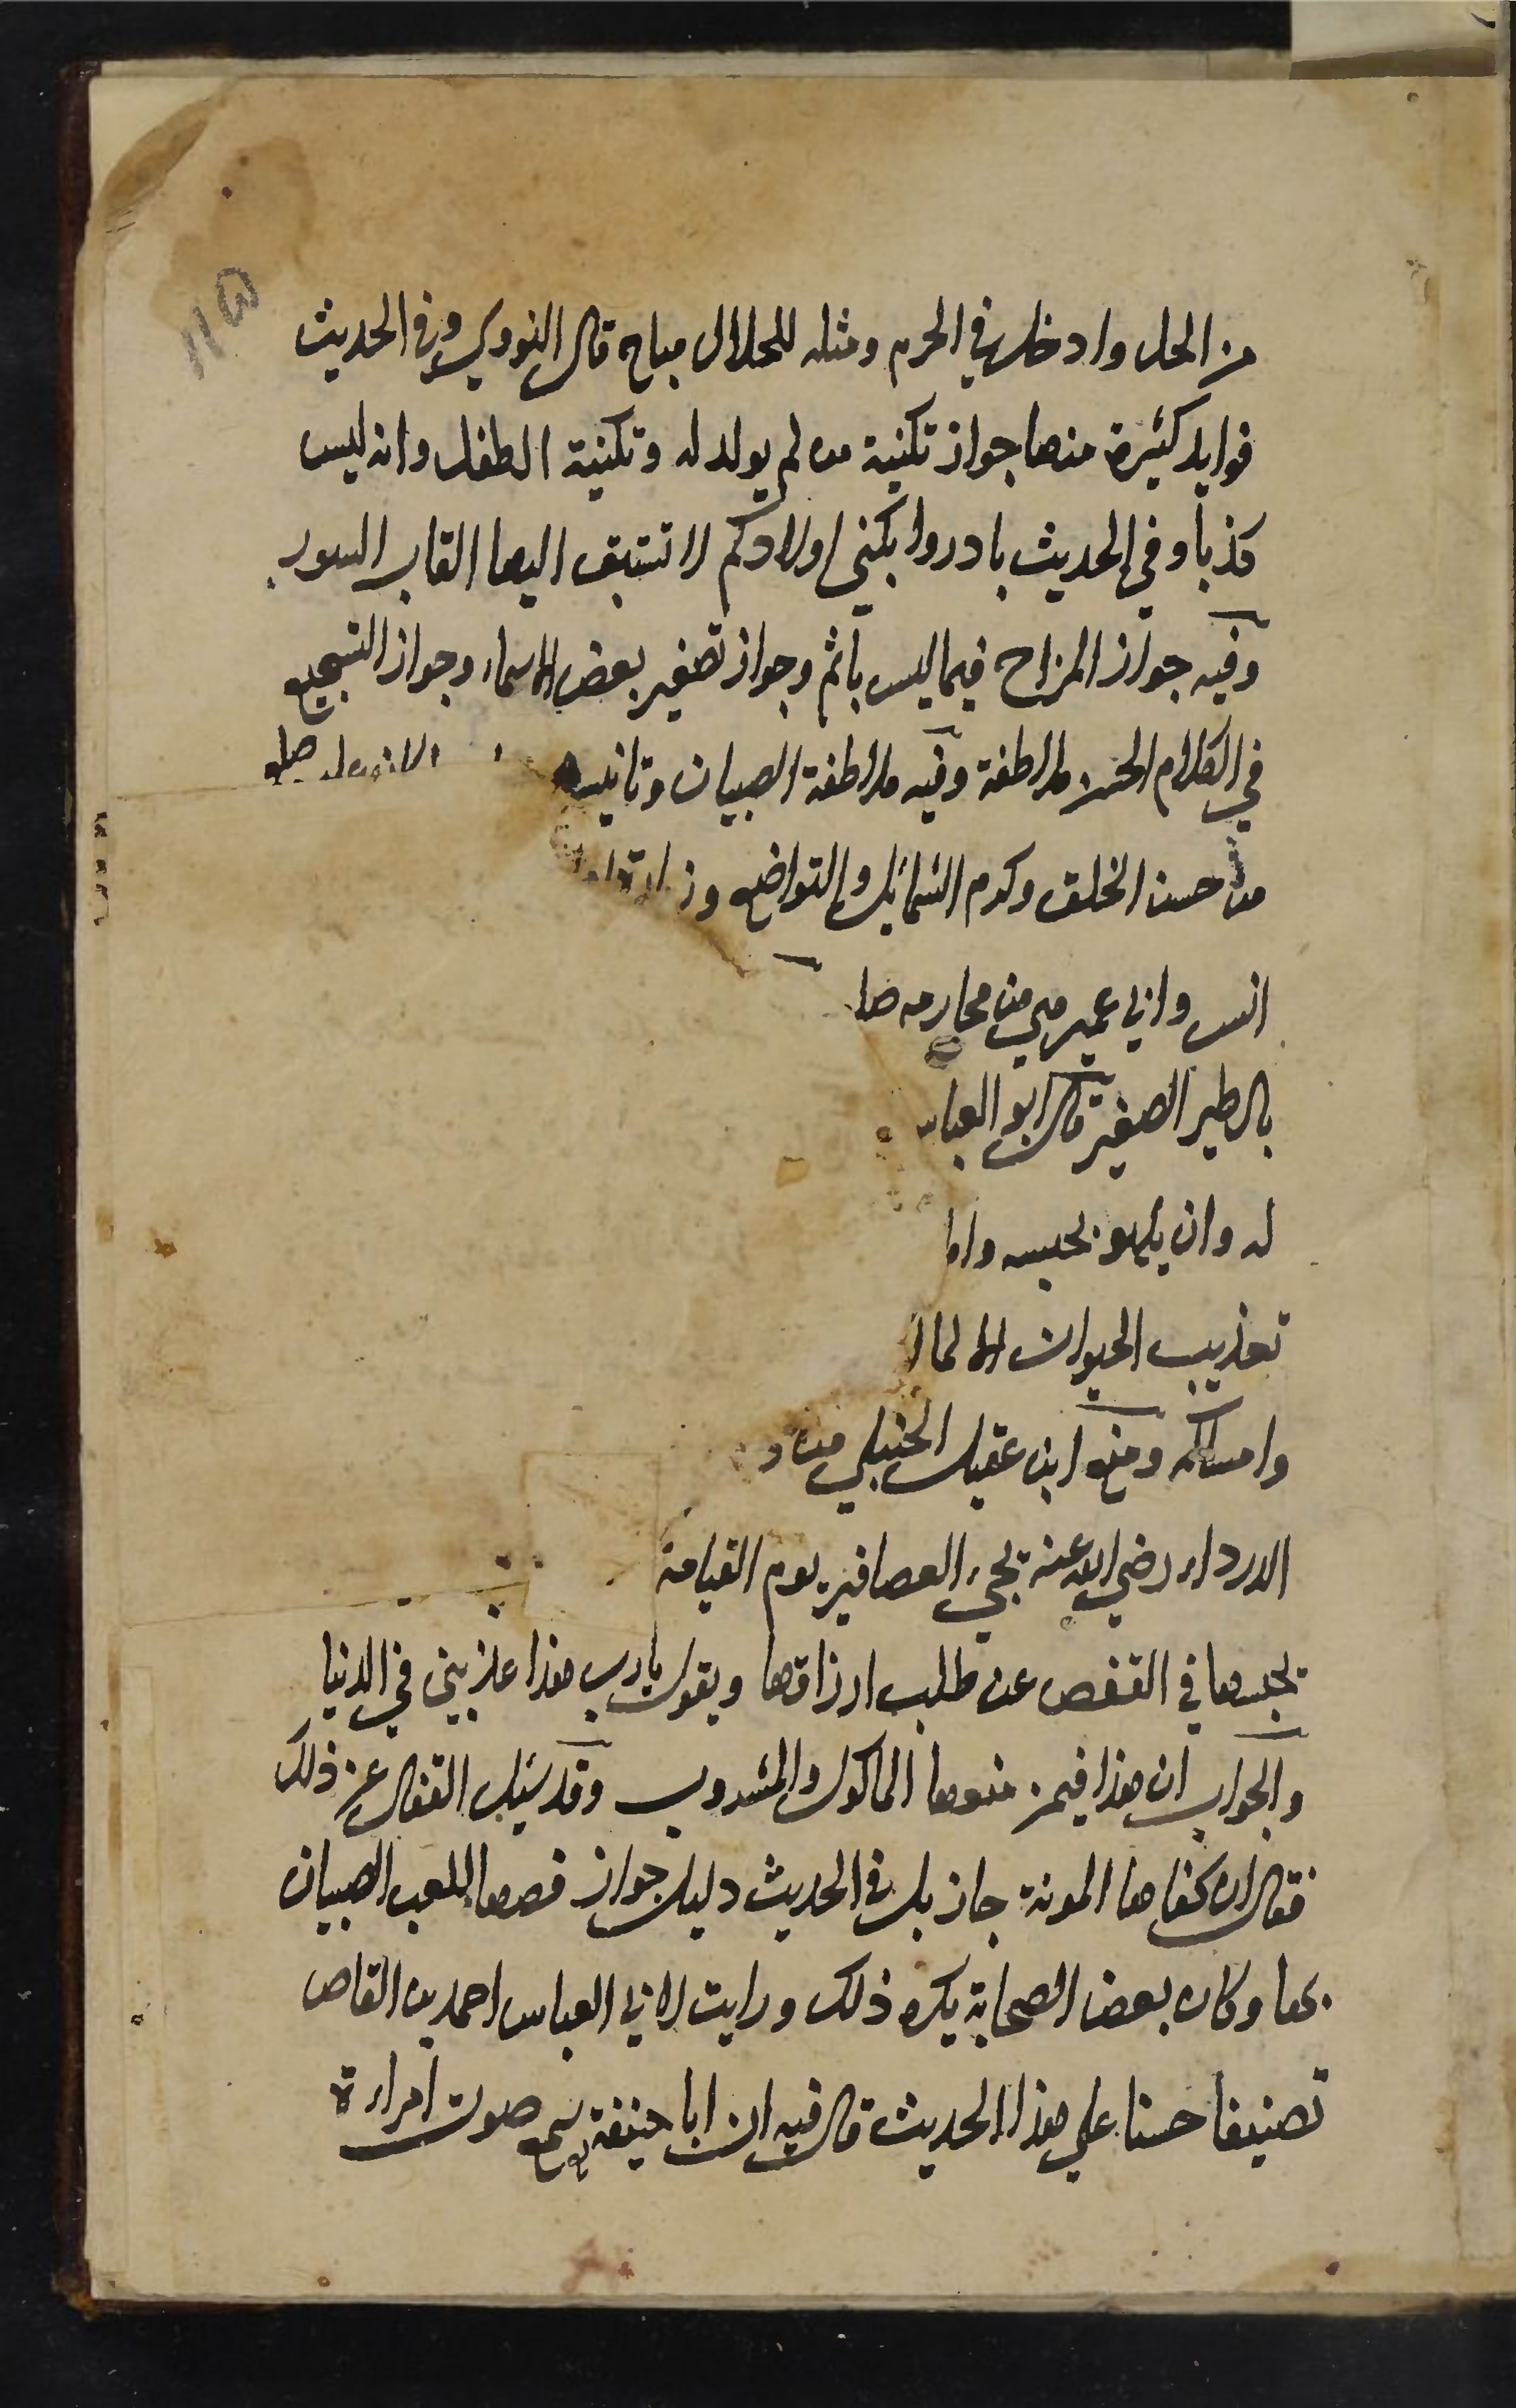 من الحل وادخل في الحرم ومثله للحلال مباح قال النووي وفي الحديث
فوايد كثيرة منها جواز تكنية من لم يولد له وتكنية الطفل وانه ليس
كذبا وفي الحديث بادروا بكني اولادكم لا تستبق اليها القاب السوء
وفيه جواز المزاح فيما ليس باثم وجواز تصغير بعض الاسماء وجواز التسجيع
في الكلام الحسن ملاطفة وفيه ملاطفة الصبيان وتانيسهم
من حسن الخلق وكرم الشمائل والتواضع وزيارة
انس وابي عمير هي من محارمه صلي
بالطير الصغير قال ابو العباس
له وان يلهو بحبسه واما
تعذيب الحيوان الا لما
وامساكه ومنع ابن عقيل الحنبلي من
الدرداء رضي الله عنه تجيء العصافير يوم القيامة
تحبسها في القفص عن طلب ارزاقها وبقول يارب هذا عذبني في الدنيا
والجواب ان هذا فيمن منعها الماكول والمشروب وقد سئل القفال عن ذلك
فقال ان كفاها المونة جاز بل في الحديث دليل جواز قصها للعب الصبيان
بها وكان بعض الصحابة يكره ذلك ورايت لابي العباس احمد بن القاص
تصنيفا حسنا علي هذا الحديث قال فيه ان ابا حنيفة سمع صوت امراءة